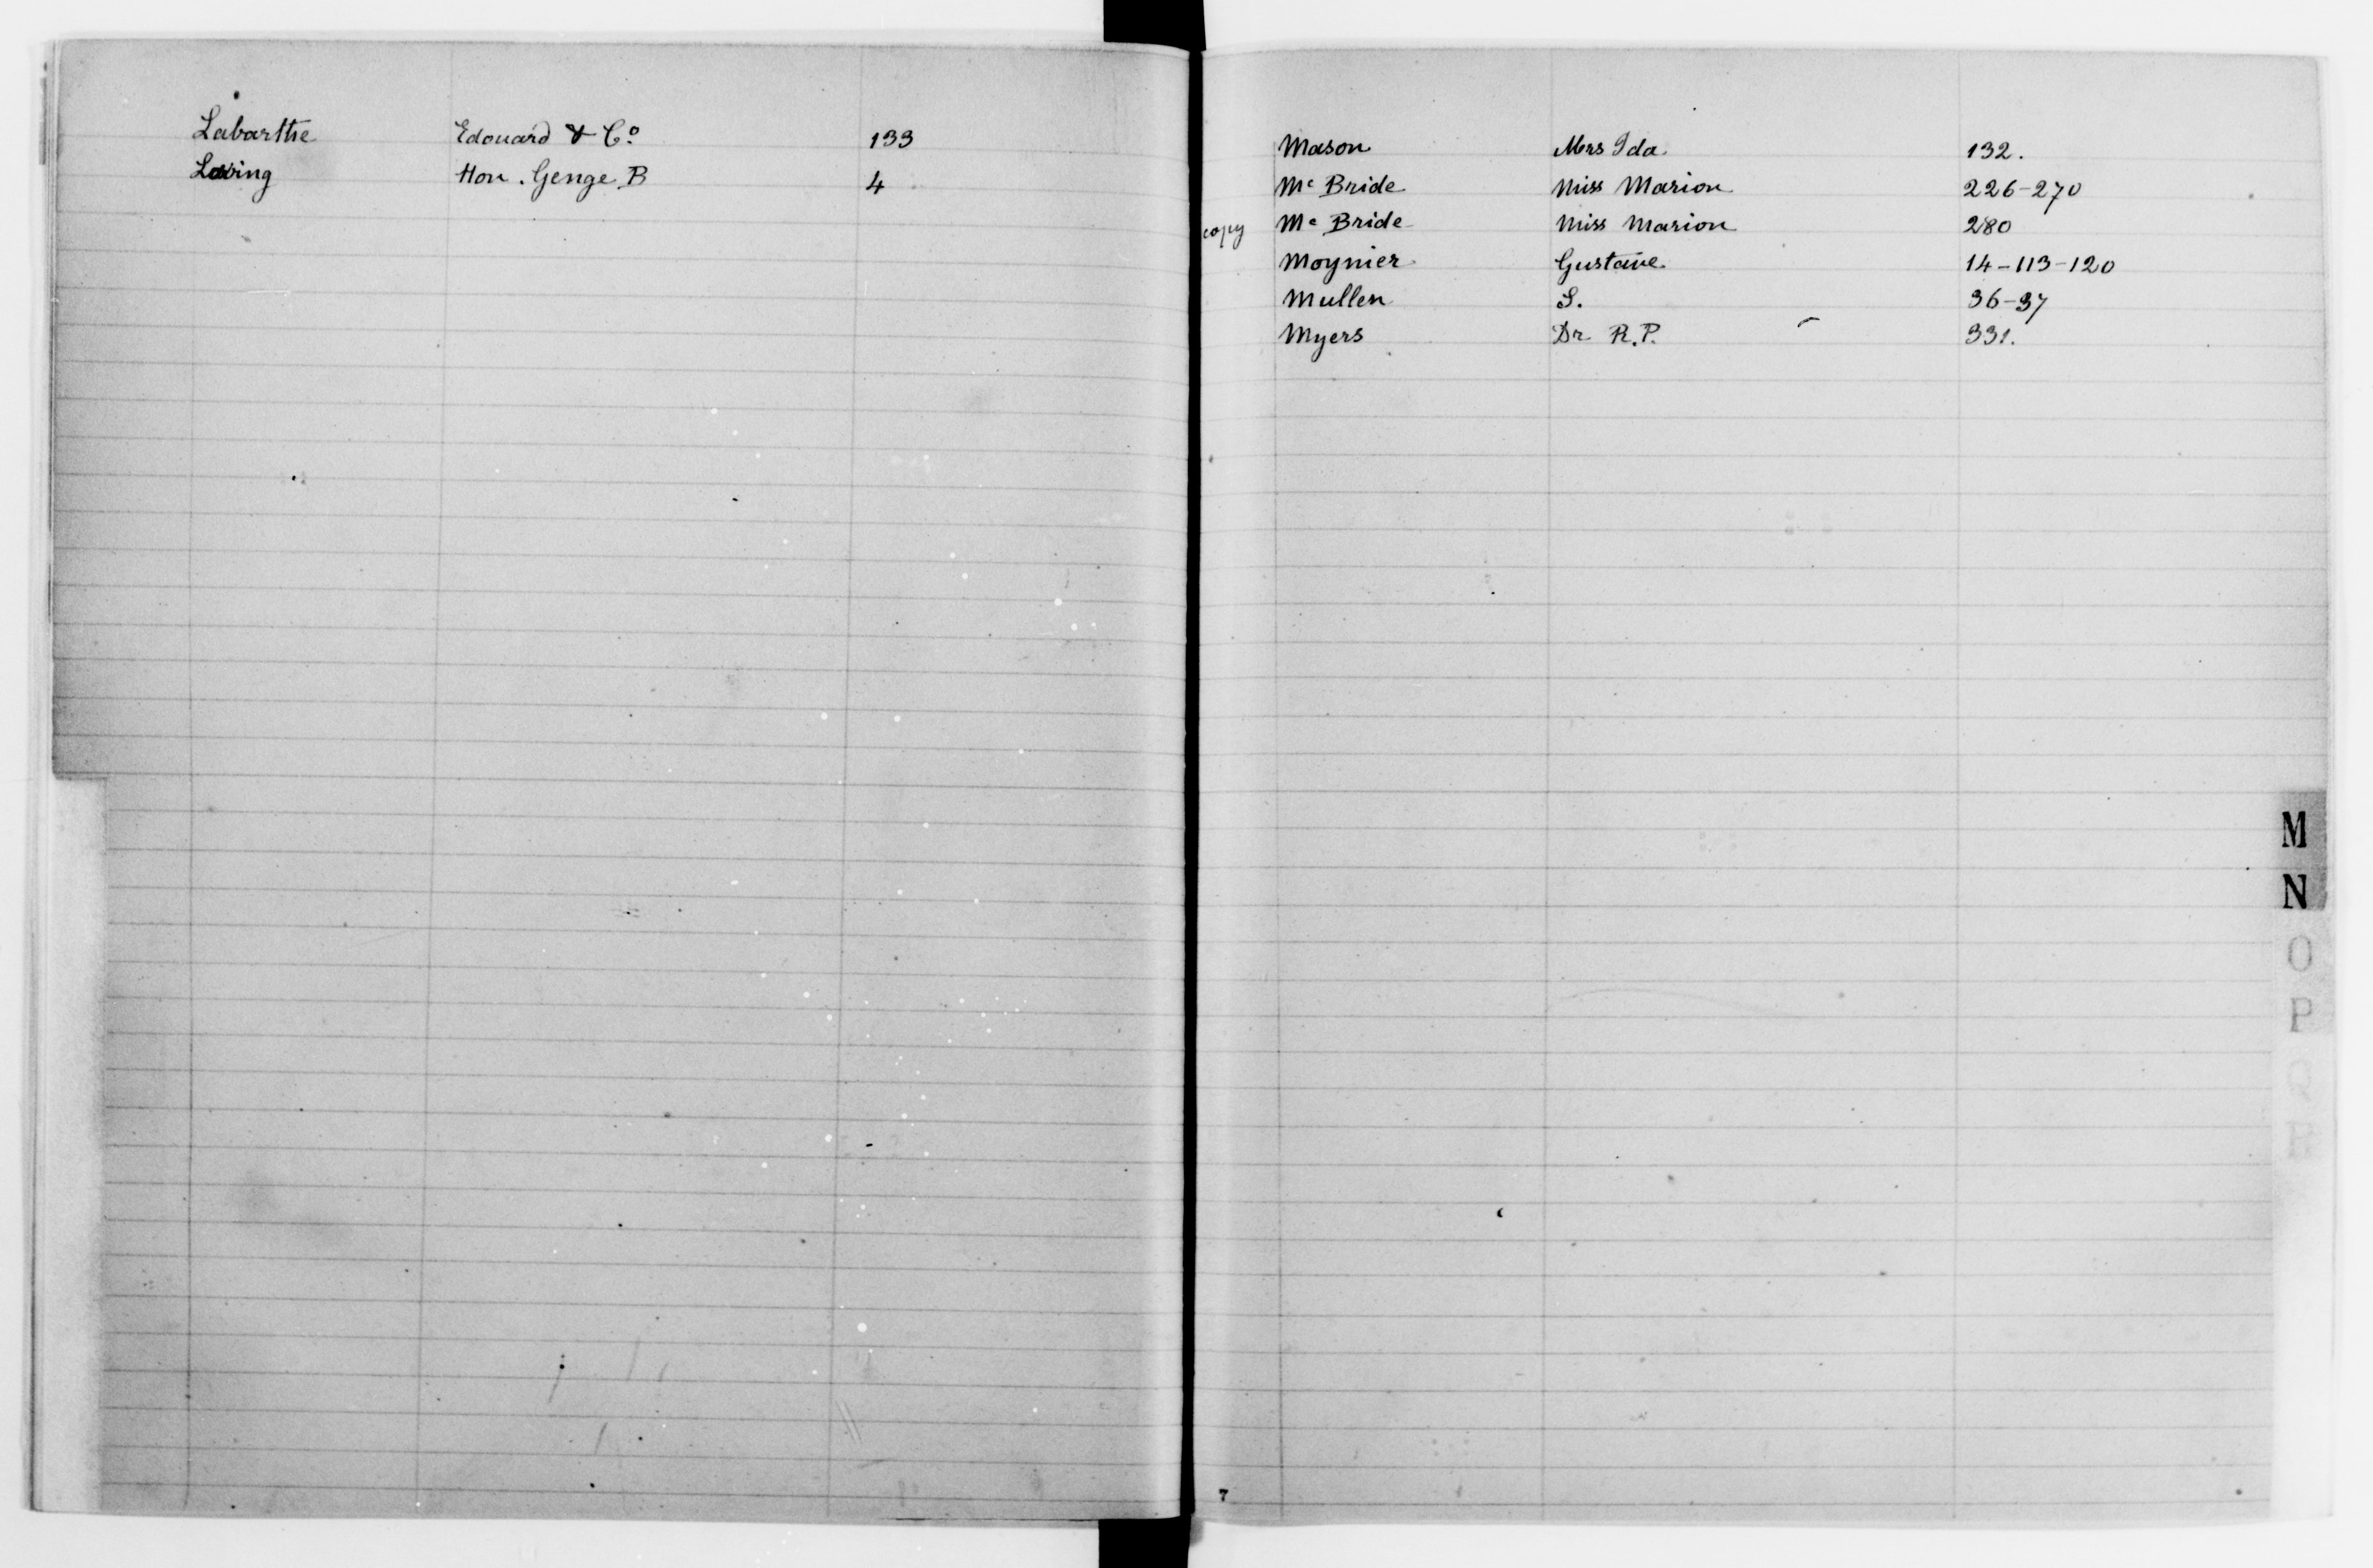 Labarthe Edouard & Co. 133
Loring Hon. George B 4
Mason Mrs Ida 132.
Mc Bride Miss Marion 226-270
copy Mc Bride Miss Marion 280
Moynier Gustave 14-113-120
Mullen S. 36-37
Myers Dr R.P. 331.
M
N
O
P
Q
R
7